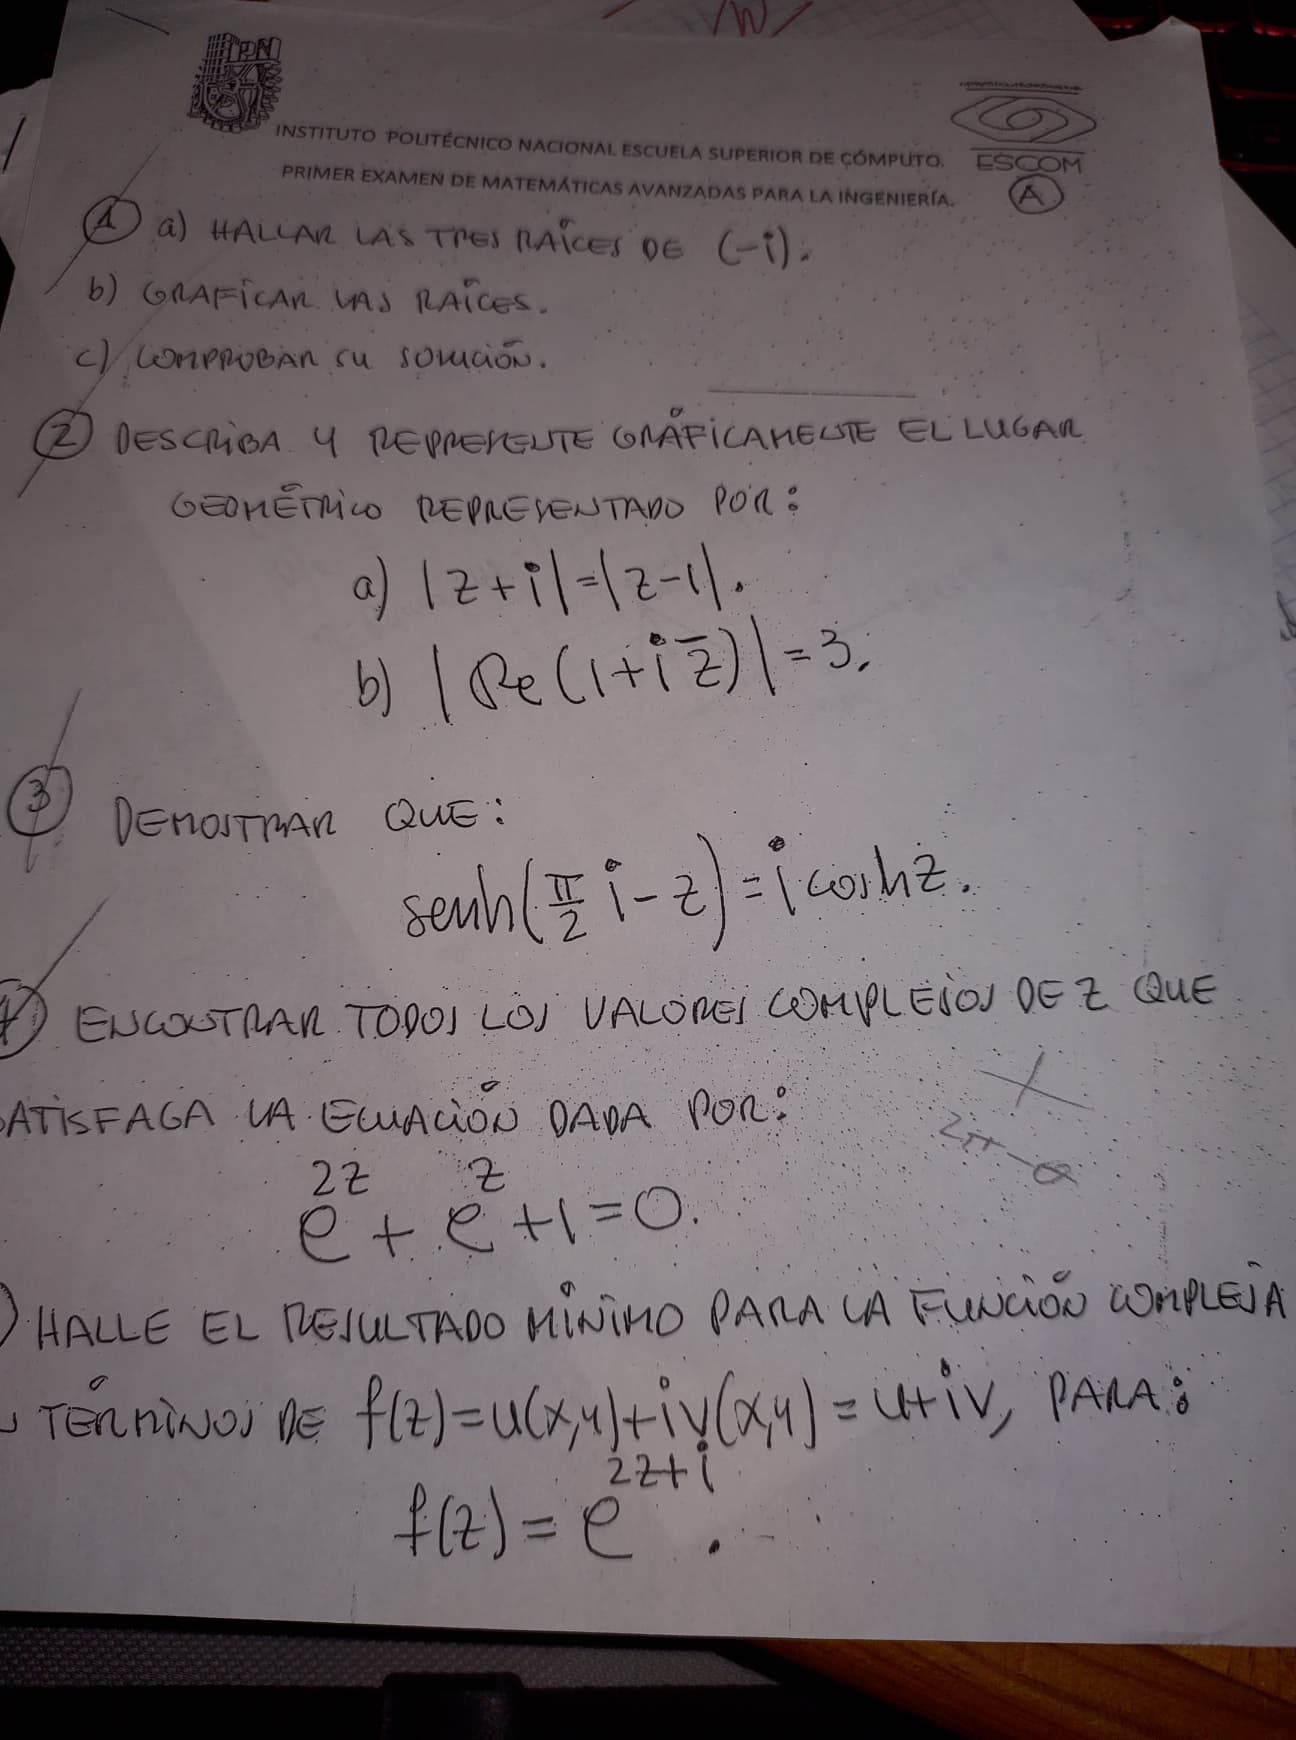 IPN
INSTITUTO POLITÉCNICO NACIONAL ESCUELA SUPERIOR DE CÓMPUTO.
ESCOM
PRIMER EXAMEN DE MATEMÁTICAS AVANZADAS PARA LA INGENIERÍA.
A
1 a) HALLAR LAS TRES RAÍCES DE (-i).
b) GRAFICAR LAS RAÍCES.
c) COMPROBAR SU SOLUCIÓN.
2 DESCRIBA Y REPRESENTE GRÁFICAMENTE EL LUGAR
GEOMÉTRICO REPRESENTADO POR:
a) |z+i|=|z-1|.
b) |Re(1+i z̅)|=3.
3 DEMOSTRAR QUE:
senh(π/2 i-z)=i cosh z.
ENCONTRAR TODOS LOS VALORES COMPLEJOS DE Z QUE
SATISFAGA LA ECUACIÓN DADA POR:
2π-α
e^{2z}+e^{z}+1=0.
) HALLE EL RESULTADO MÍNIMO PARA LA FUNCIÓN COMPLEJA
TÉRMINOS DE f(z)=u(x,y)+iv(x,y)=u+iv, PARA:
f(z)=e^{2z+i}.